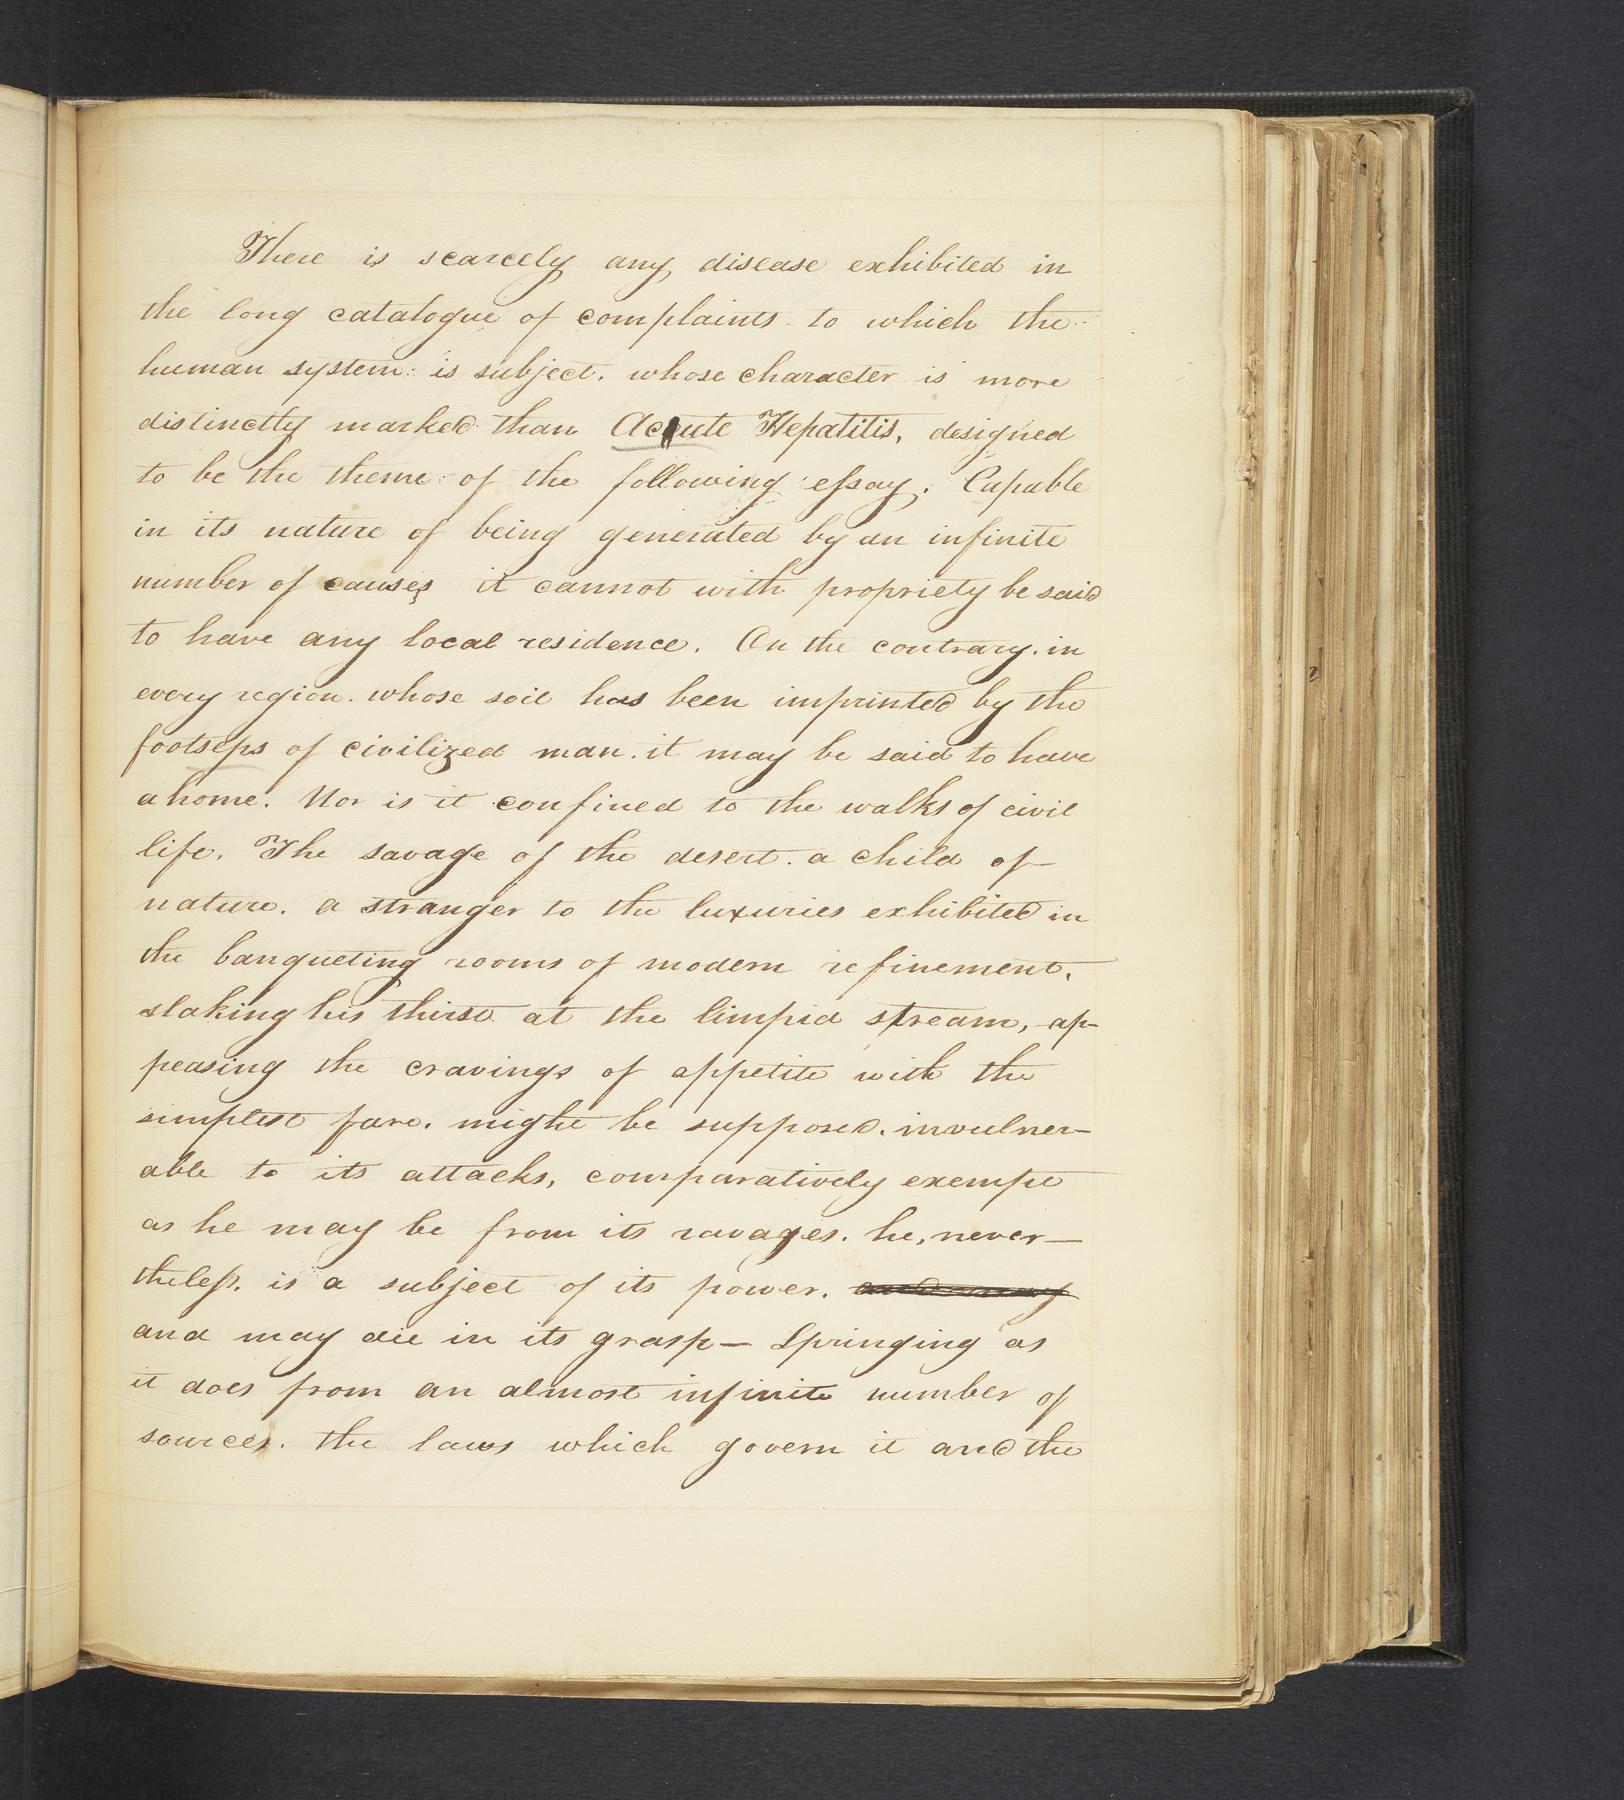 There is scarcely any, disease exhibited in
the long catalogue of complaints to which the
human system is subject. whose character is more
distinctly marked than Acute Hepatitis, designed
to be the theme of the following essay. Capable
in its nature of being generated by an infinite
number of causes it cannot with propriety be said
to have any local residence. On the contrary. in
every region. whose soil has been imprinted by the
footseps of civilized man. it may be said to have
a home. Nor is it confined to the walks of civil
life. The savage of the desert. a child of
nature. a stranger to the luxuries exhibited in
the banqueting rooms of modern refinement,
slaking his thirst at the limpid stream, ap-
peasing the cravings of appetite with the
simplest fare. might be supposed. invulner-
able to its attacks, comparatively exempt
as he may be from its ravages. he, never-
theless. is a subject of its power. and may
and may die in its grasp - Springing as
it does from an almost infinite number of
sources. the laws which govern it and the